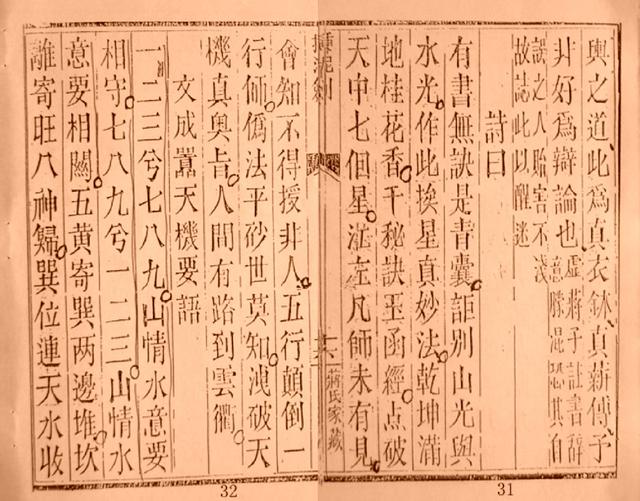 輿之道此爲真衣鉢真薪傳予
非好爲辯論也虛蔣子註書辭
意勝混恐其自
誤之人貽害不淺
故誌此以醒迷
詩曰
有書無訣是青囊詎別山光與
水光作此挨星真妙法乾坤滿
地桂花香千秘訣玉函經点破
天中七個星茫茫凡師未有見
蔣氏家藏
會知不得授非人五行顛倒一
行師僞法平砂世莫知洩破天
機真奥旨人間有路到雲衢
文成囂天機要語
一二三兮七八九山情水意要
相守七八九兮一二三山情水
意要相關五黄寄巽两邊堆坎
離寄旺八神歸巽位連天水收
31
32